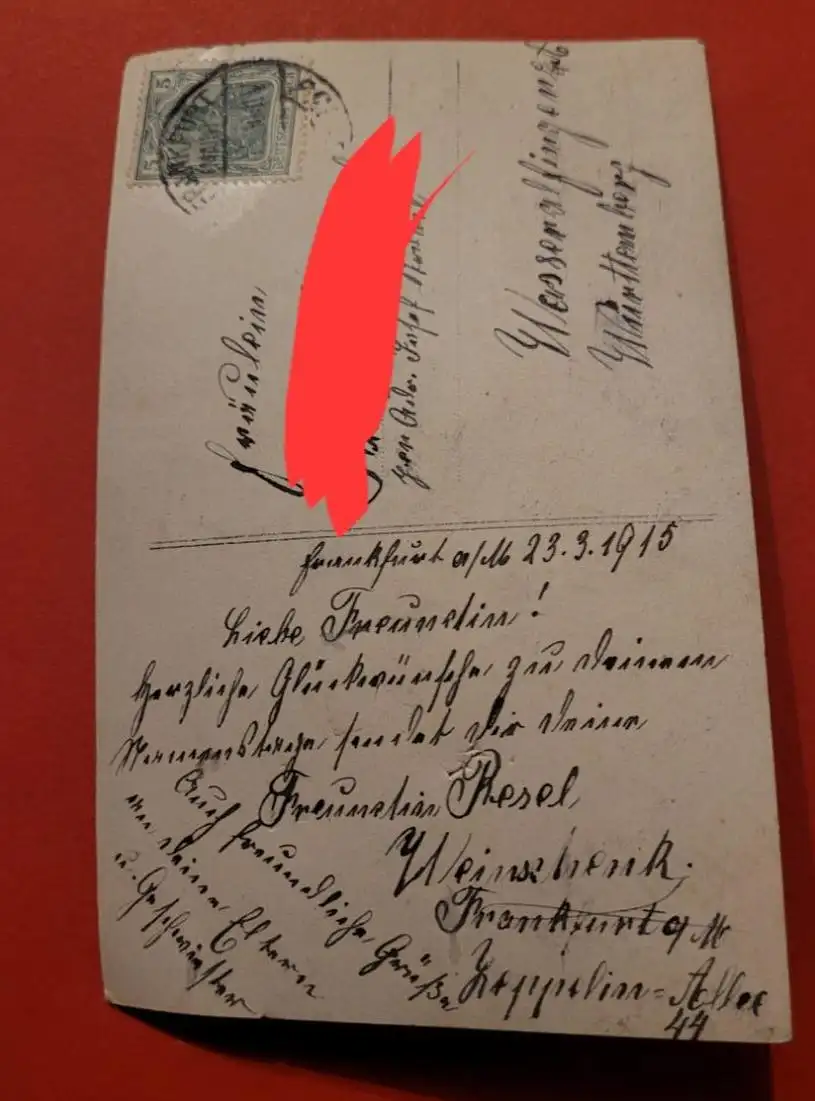 5
5
Fräulein
per Adr. Josef
Wasseralfingen
Württemberg
Frankfurt a/M 23.3.1915
Liebe Freundin!
Herzliche Glückwünsche zu deinem
Namenstage sendet dir deine
Freundin Resel
Weinschenk.
Frankfurt a/M
Zeppelin-Allee
44
Auch freundliche Grüße
an deine Eltern
u. Geschwister